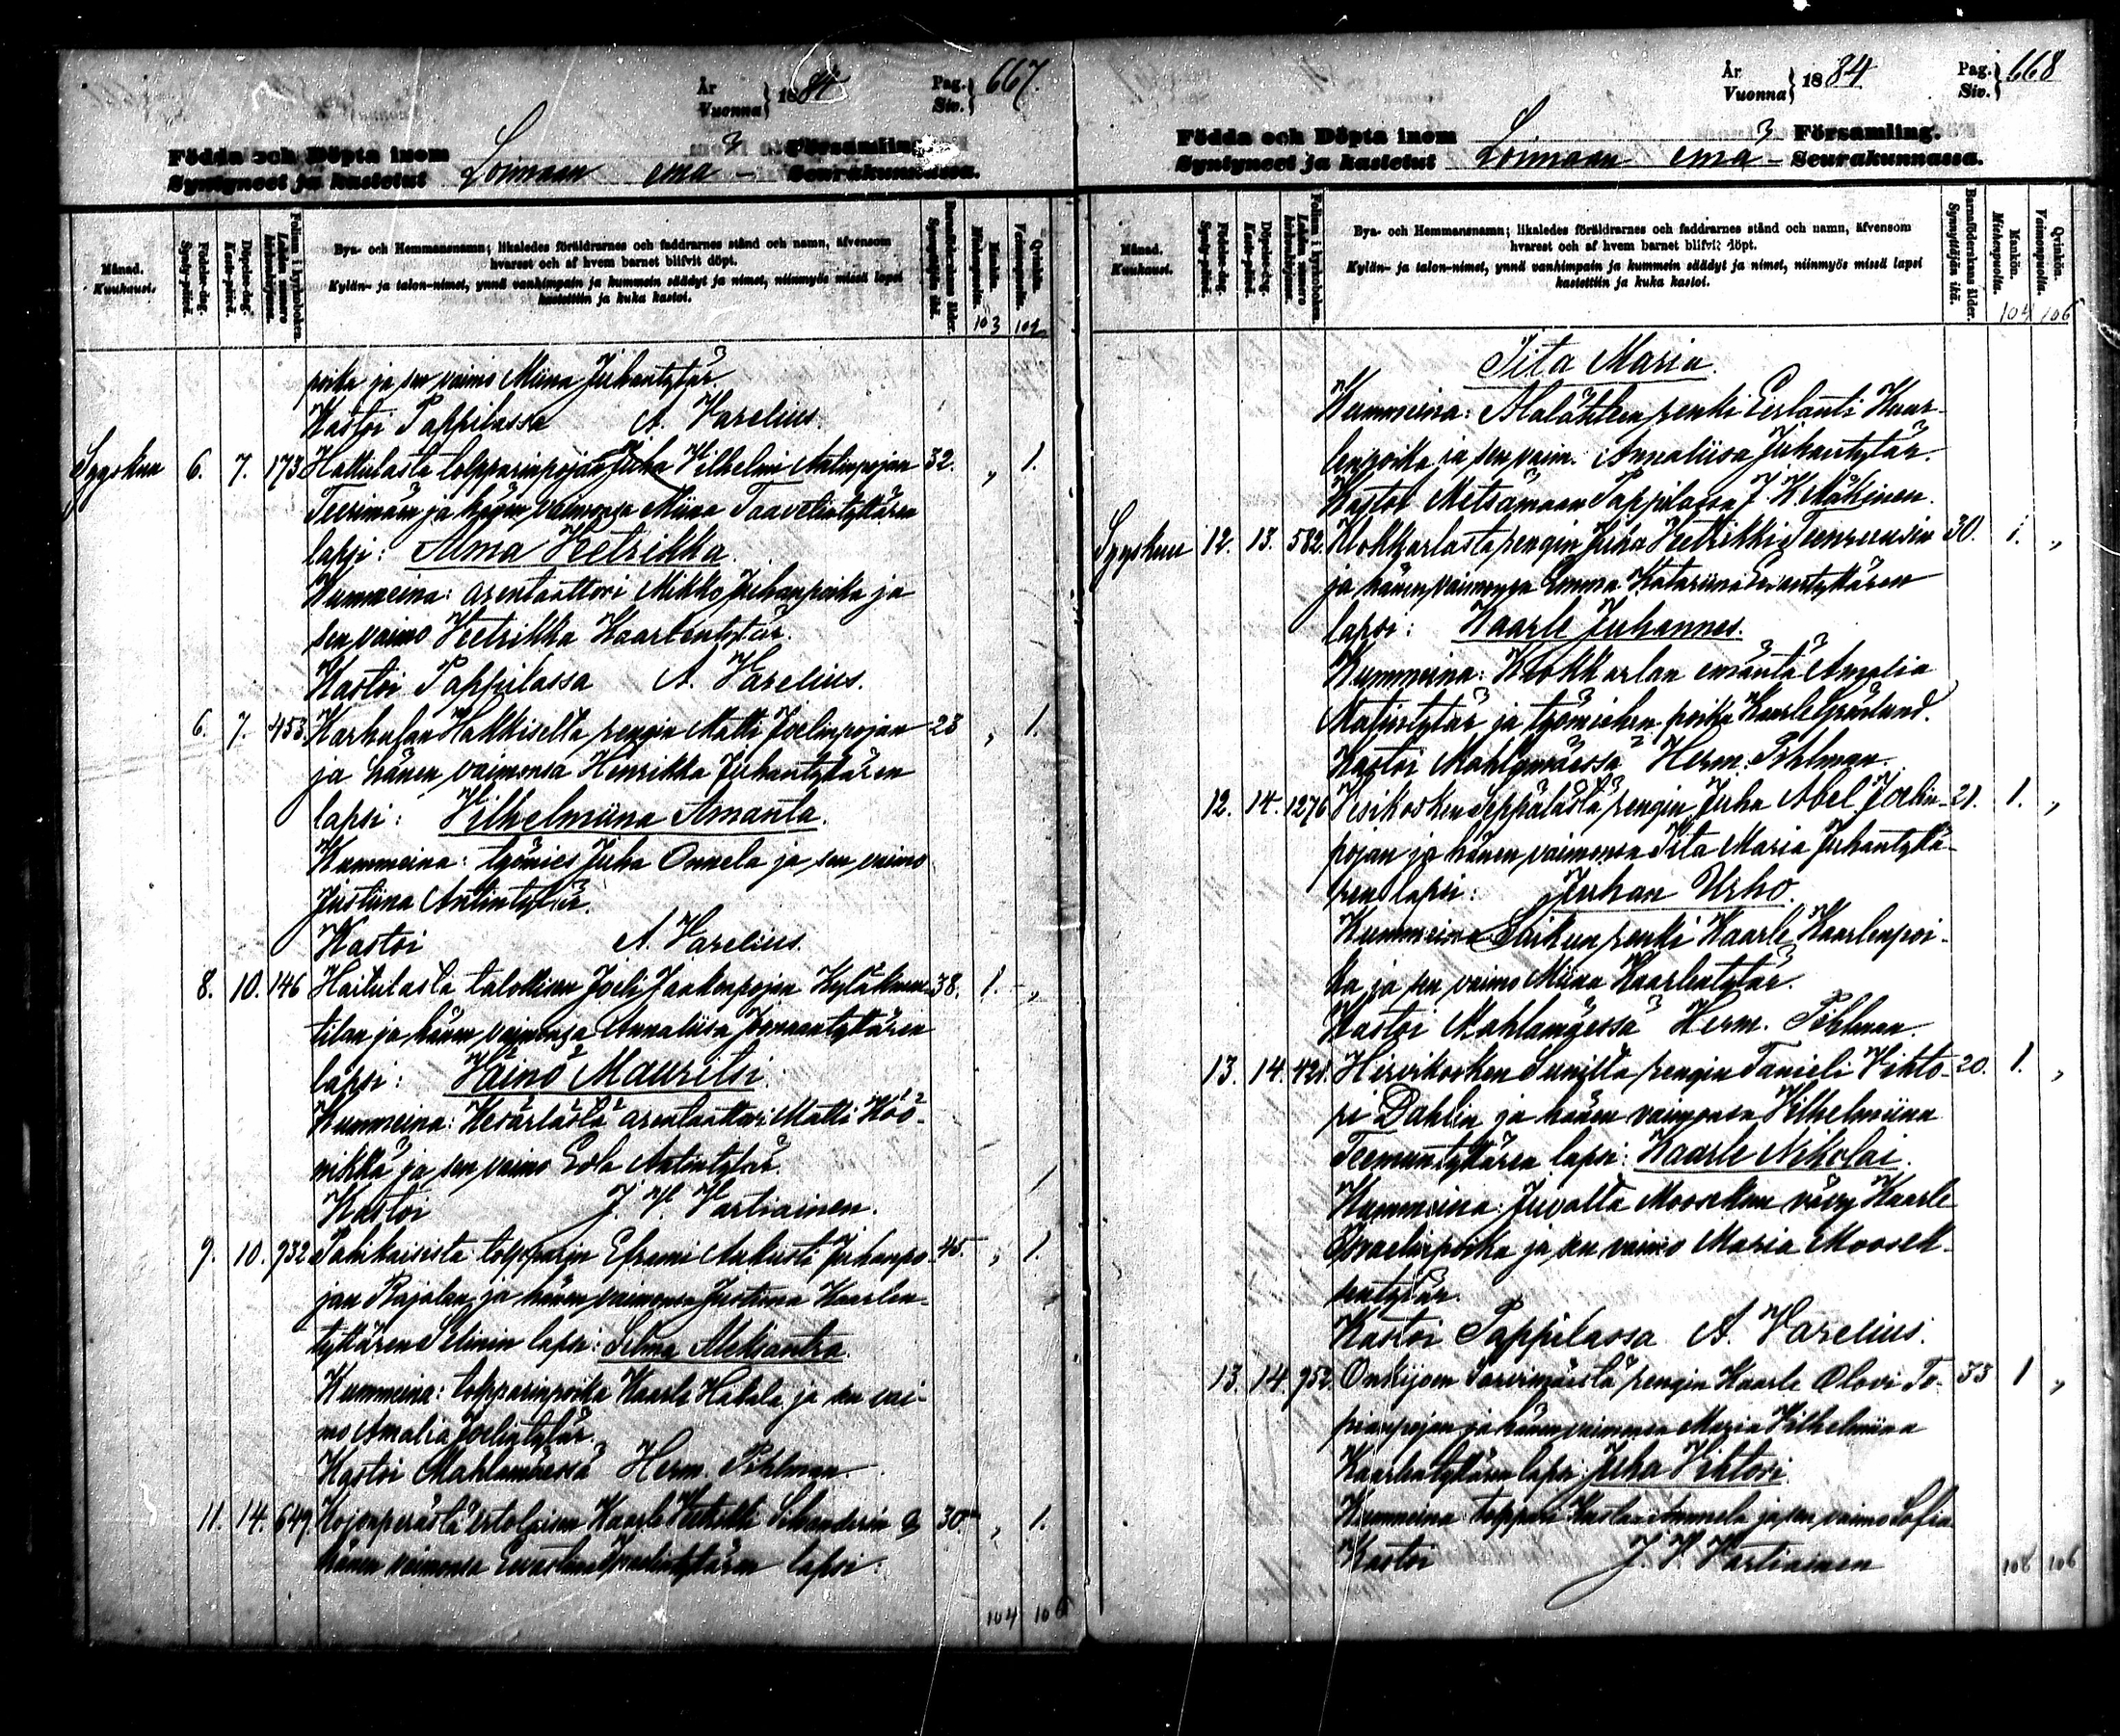 År
Vuonna } 1884
Pag.
Siv. } 667.
Födda och Döpta inom
Syntyneet ja kastetut
Loimaan emä-
Församling.
Seurakunnassa.
Månad.
Kuukausi.
Födelse-dag.
Synty-päivä.
Döpelse-dag.
Kaste-päivä.
Folium i kyrkoboken.
Lehden numero kirkonkirjassa.
Bya- och Hemmansnamn; likaledes föräldrarnes och faddrarnes stånd och namn, äfvensom
hvarest och af hvem barnet blifvit döpt.
Kylän- ja talon-nimet, ynnä vanhimpain ja kummein säädyt ja nimet, niinmyös missä lapsi
kastettiin ja kuka kastoi.
Barnaföderskans ålder.
Synnyttäjän ikä.
Mankön.
Miehenpuolia.
Qvinkön.
Vaimonpuolia.
103 102
poika ja sen vaimo Miina Juhantytär.
Kastoi Pappilassa A. Varelius.
Syyskuu 6. 7. 173 Hattulasta torpparinpojan Juha Vilhelmi Antinpojan 32. „ 1.
Teerimäen ja hänen vaimonsa Miina Taavetintyttären
lapsi: Alma Vetrikka.
Kummeina: arentaattori Mikko Juhanpoika ja
sen vaimo Veetrikka Kaarlentytär.
Kastoi Pappilassa A. Varelius.
6. 7. 453. Karhulan Hakkiselta rengin Matti Joelinpojan 23 „ 1.
ja hänen vaimonsa Henrikka Juhantyttären
lapsi: Vilhelmiina Amanta.
Kummeina: työmies Juha Onnela ja sen vaimo
Justiina Antintytär.
Kastoi A. Varelius.
8. 10. 146 Haitulasta talollisen Joeli Jaakonpojan 38. 1. „
tilan ja hänen vaimonsa Annaliisa Joonaantyttären
lapsi: Väinö Mauritsi.
Kummeina: arentaattori Matti Köö-
nikkä ja sen vaimo Eeva Antintytär.
Kastoi J. V. Vartiainen.
9. 10. 932 torpparin Efraimi Aukusti Juhanpo- 45. „ 1.
jan Rajalan ja hänen vaimonsa Justiina Kaarlen-
tyttären Selinin lapsi: Selma Aleksantra.
Kummeina: torpparinpoika Kaarle Hakala ja sen vai-
mo Amalia Joelintytär.
Kastoi Mahlamäessä Herm. Pihlman.
11. 14. 649. Kojonperästä itsellisen Kaarle Veetrikki 30. „ 1.
hänen vaimonsa lapsi:
104 106
År
Vuonna } 1884
Pag.
Siv. } 668
Födda och Döpta inom
Syntyneet ja kastetut
Loimaan emä-
Församling.
Seurakunnassa.
Månad.
Kuukausi.
Födelse-dag.
Synty-päivä.
Döpelse-dag.
Kaste-päivä.
Folium i kyrkoboken.
Lehden numero kirkonkirjassa.
Bya- och Hemmansnamn; likaledes föräldrarnes och faddrarnes stånd och namn, äfvensom
hvarest och af hvem barnet blifvit döpt.
Kylän- ja talon-nimet, ynnä vanhimpain ja kummein säädyt ja nimet, niinmyös missä lapsi
kastettiin ja kuka kastoi.
Barnaföderskans ålder.
Synnyttäjän ikä.
Mankön.
Miehenpuolia.
Qvinkön.
Vaimonpuolia.
104 106
Iita Maria.
Kummeina: renki Eerlanti Kaar-
lenpoika ja sen vaim. Annaliisa Juhantytär.
Kastoi Metsämaan Pappilassa J. K. Mäkinen.
Syyskuu 12. 13. 582. Klokkarlasta rengin Juha Veetrikki 30. 1. „
ja hänen vaimonsa Emma Katariina
lapsi: Kaarle Juhannes.
Kummeina: Klokkarlan emäntä Amalia
Matintytär ja työmiehen poika Kaarle Grönlund.
Kastoi Mahlamäessä Herm. Pihlman.
12. 14. 1276 Vesikosken Seppälästä rengin Juha Abel Joelin- 21. 1. „
pojan ja hänen vaimonsa Iita Maria Juhantyttä-
ren lapsi: Juhan Urho.
Kummeina renki Kaarle Kaarlenpoi-
ka ja sen vaimo Miina Kaarlentytär.
Kastoi Mahlamäessä Herm. Pihlman.
13. 14. 421. Hirvikosken rengin Tanieli Vihto- 20. 1. „
ri Dahlin ja hänen vaimonsa Vilhelmiina
Teemuntyttären lapsi: Kaarle Nikolai.
Kummeina: Juvalta Moosekun vävy Kaarle
Israelinpoika ja sen vaimo Maria Moosek-
sentytär.
Kastoi Pappilassa A. Varelius.
13. 14. 952. Onkijoen rengin Kaarle Olovi To- 33 1 „
pianpojan ja hänen vaimonsa Maria Vilhelmiina
Kaarlentyttären lapsi Juha Vihtori.
Kummeina torppari ja sen vaimo Sofia
Kastoi J. V. Vartiainen
108 106